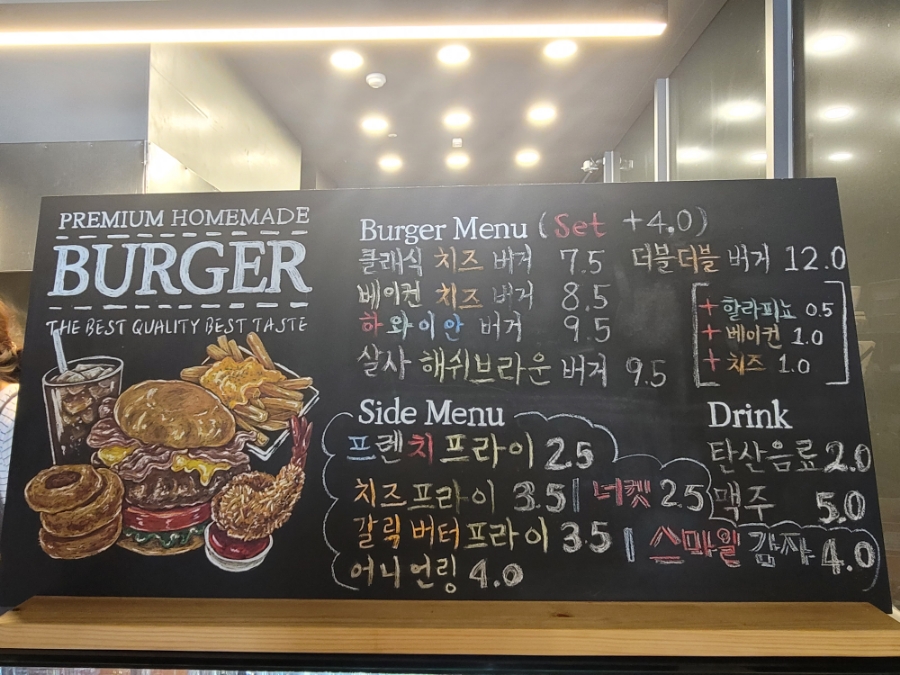 PREMIUM HOMEMADE
BURGER
THE BEST QUALITY BEST TASTE
Burger Menu (Set +4.0)
클래식 치즈 버거 7.5
베이컨 치즈 버거 8.5
하와이안 버거 9.5
살사 해쉬브라운 버거 9.5
더블더블 버거 12.0
+ 할라피뇨 0.5
+ 베이컨 1.0
+ 치즈 1.0
Side Menu
프렌치 프라이 2.5
치즈프라이 3.5 | 너켓 2.5
갈릭버터프라이 3.5 | 스마일 감자 4.0
어니언링 4.0
Drink
탄산음료 2.0
맥주 5.0